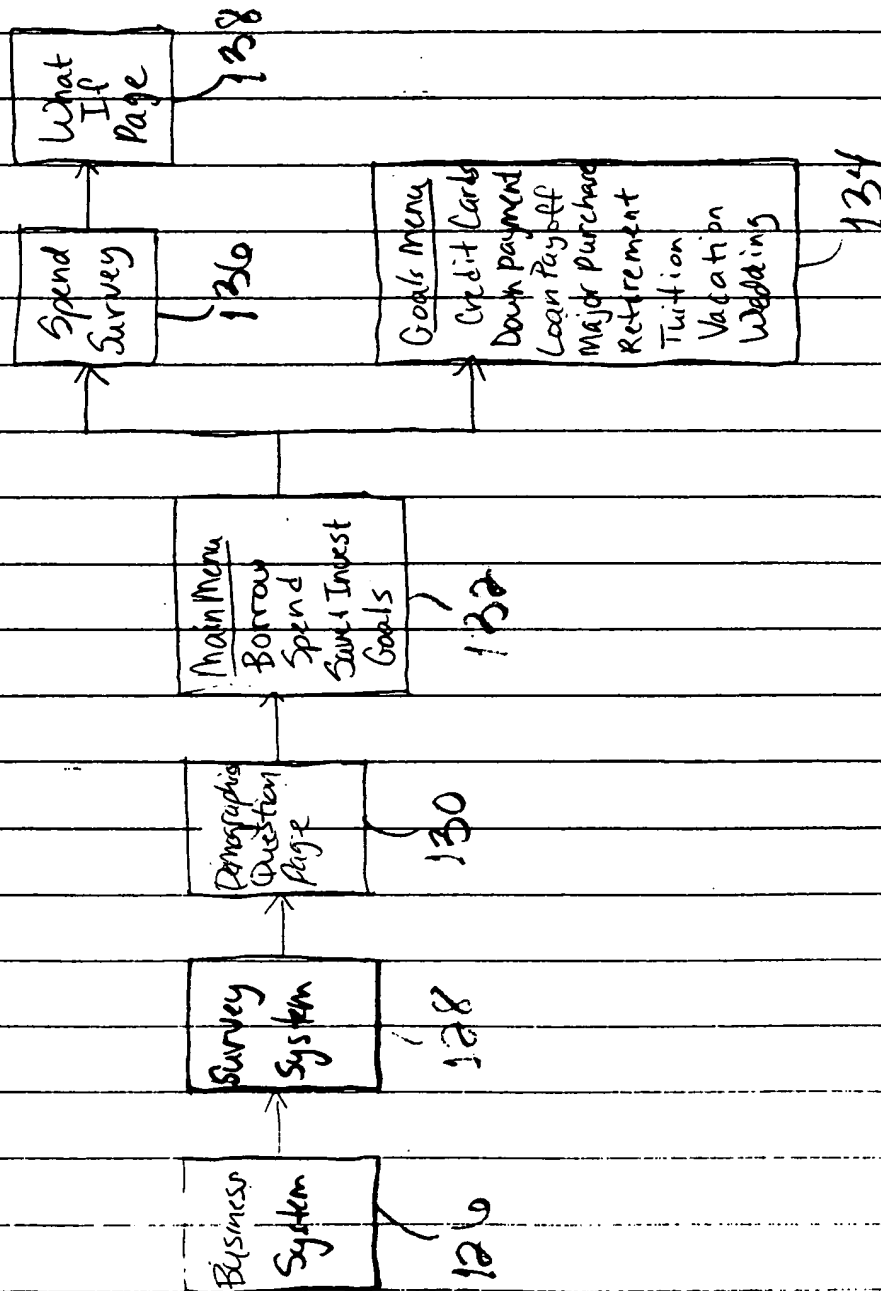 Business
System
126
Survey
System
128
Demographic
Question
Page
130
Main Menu
Borrow
Spend
Save & Invest
Goals
132
Spend
Survey
136
What
If
Page
138
Goals Menu
Credit Cards
Down payment
Loan Payoff
Major purchase
Retirement
Tuition
Vacation
Wedding
134